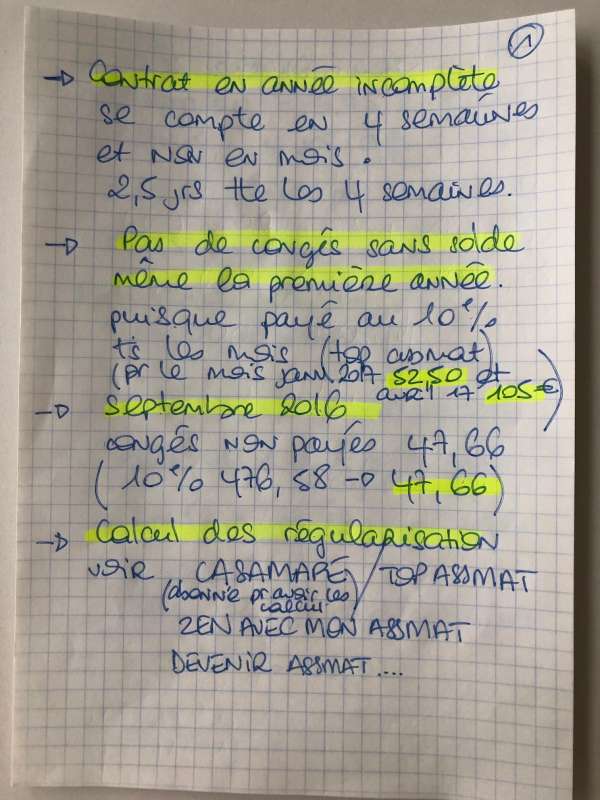 1
→ Contrat en année incomplète
se compte en 4 semaines
et NON en mois.
2,5 jrs tte les 4 semaines.
→ Pas de congés sans solde
même la première année.
puisque payé au 10%
ts les mois (top assmat)
(pr le mois janv 2017 52,50 et
avril 17 105 €)
→ Septembre 2016
congés non payés 47,66
(10% 476,58 → 47,66)
→ Calcul des régularisation
voir CASAMAPE / TOP ASSMAT
(abonnie pr avoir les
calcul)
ZEN AVEC MON ASSMAT
DEVENIR ASSMAT....